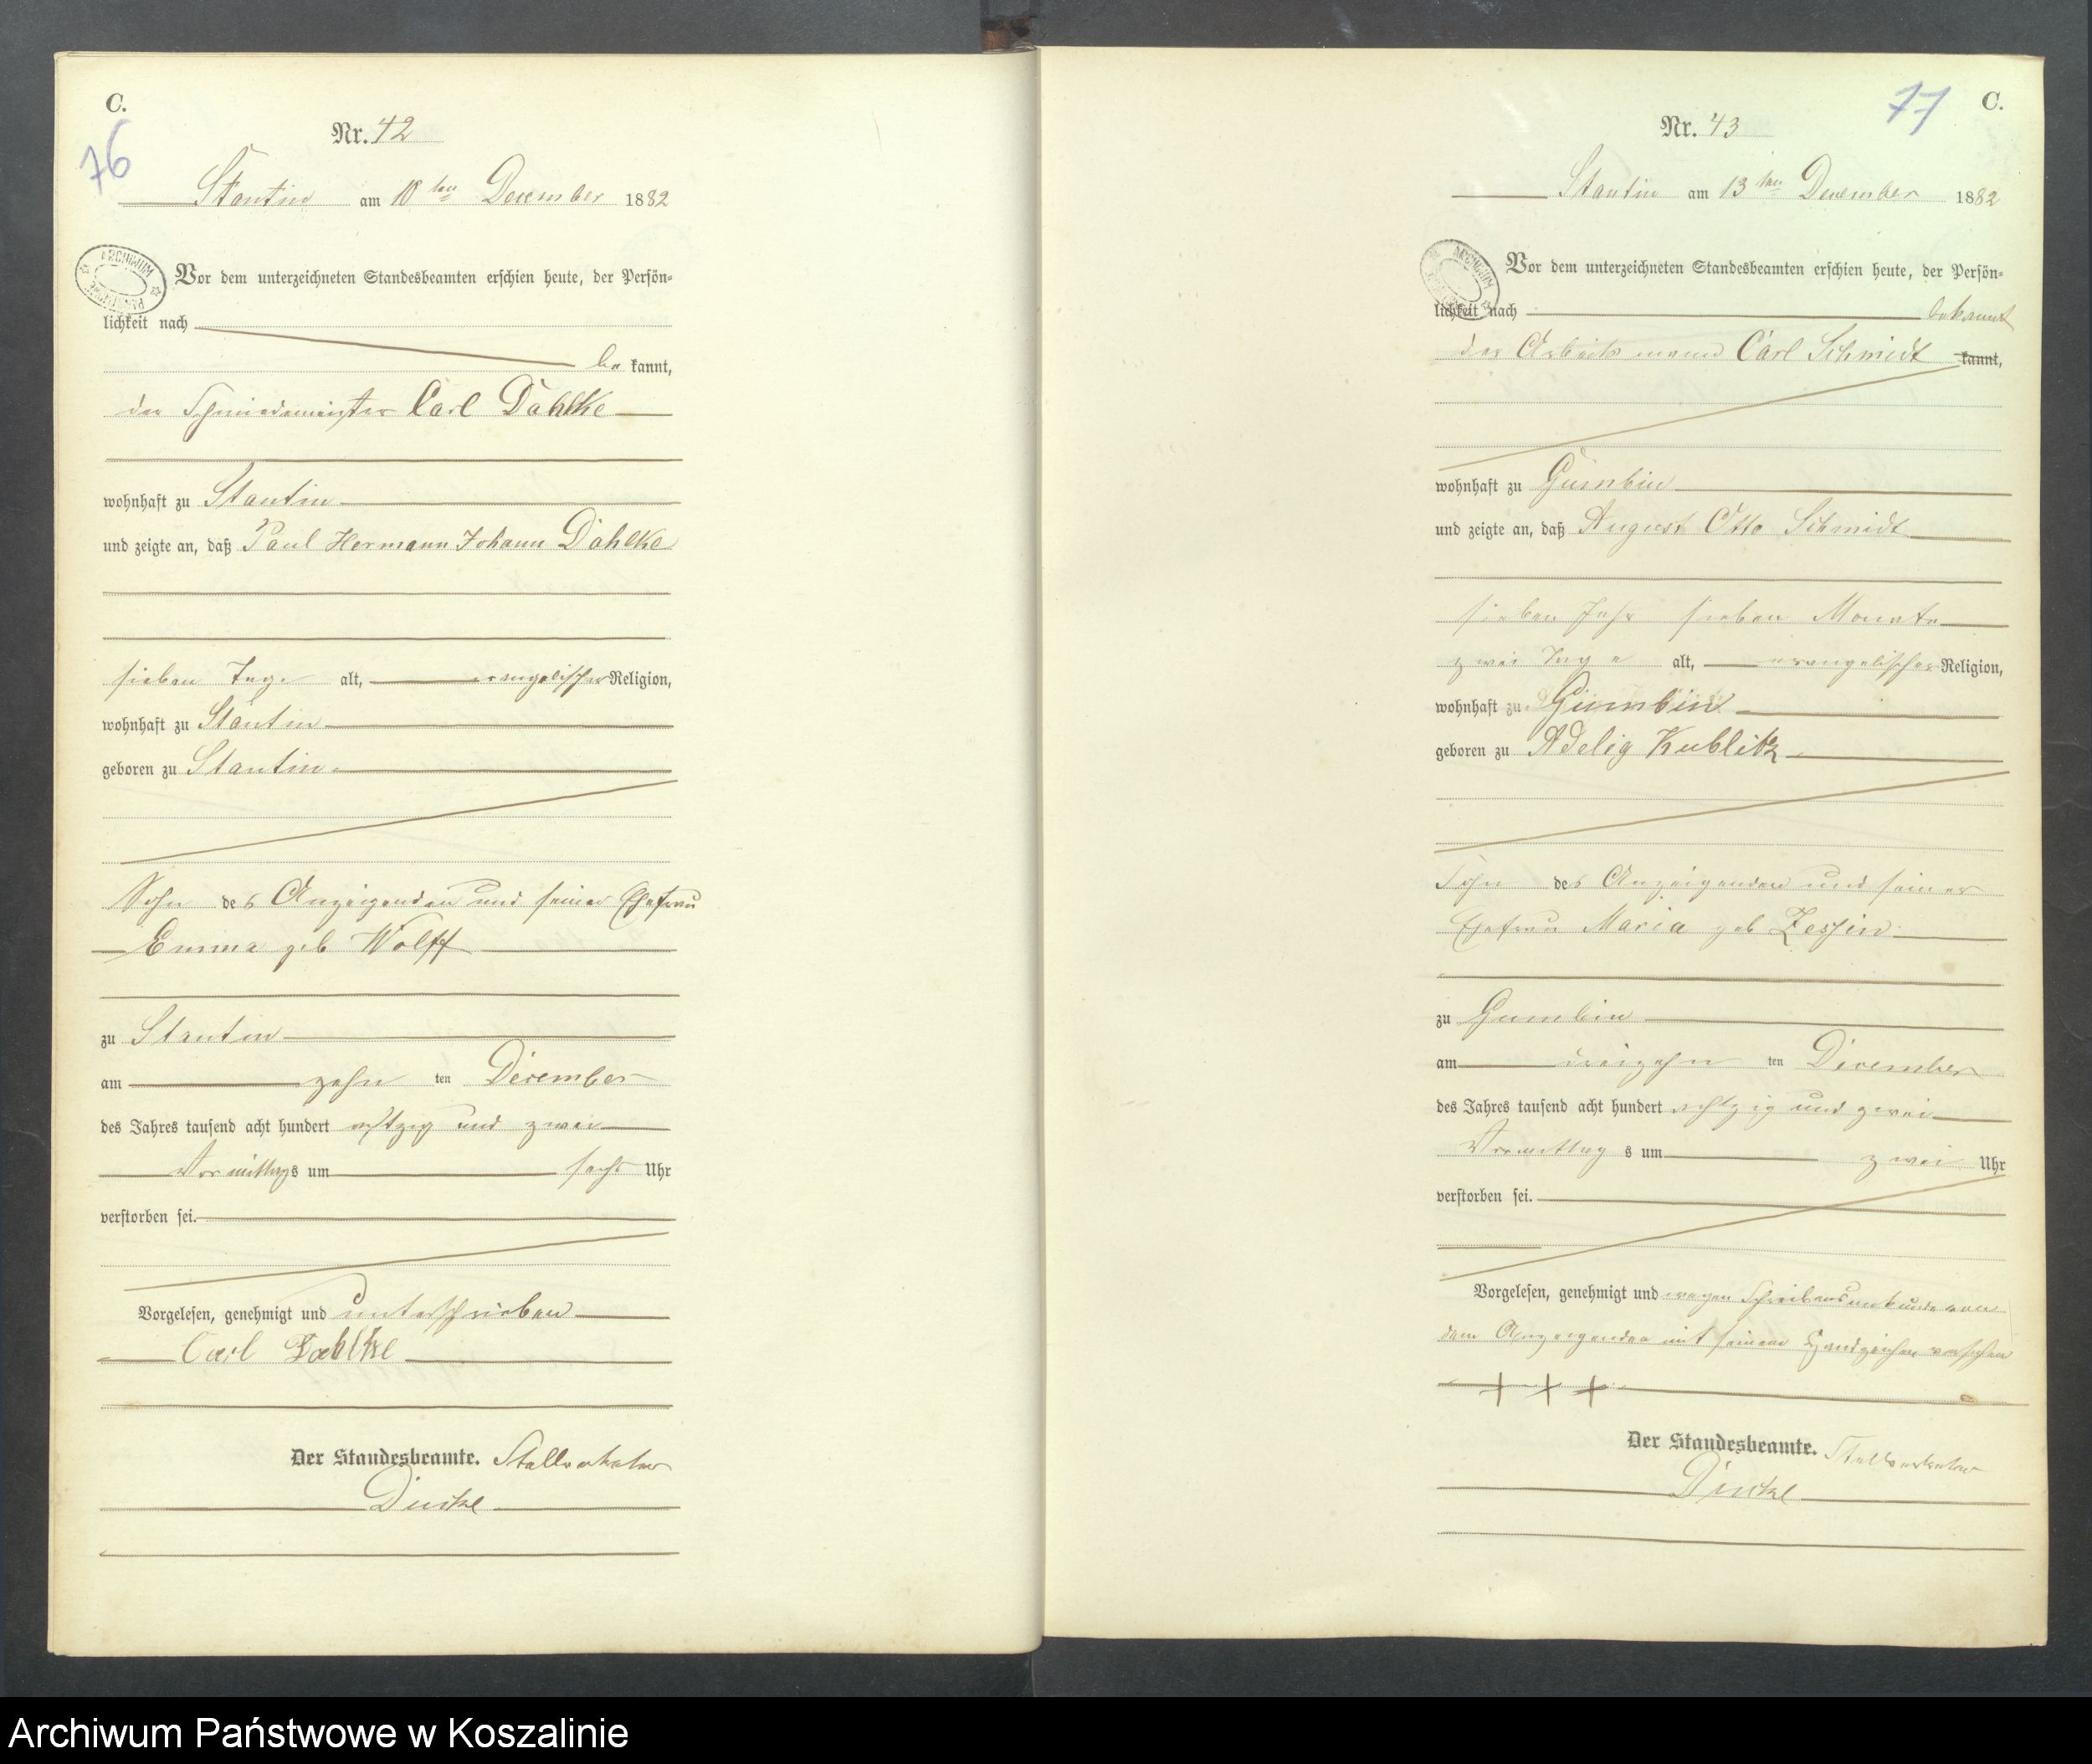 C.
76
Nr. 42
Stantin am 10 ten December 1882
ARCHIWUM
Vor dem unterzeichneten Standesbeamten erschien heute, der Persön-
lichkeit nach
be kannt,
der Schmiedemeister Carl Dahlke
wohnhaft zu Stantin
und zeigte an, daß Paul Hermann Johann Dahlke
sieben Tage alt, evangelischer Religion,
wohnhaft zu Stantin
geboren zu Stantin
Sohn des Anzeigenden und seiner Ehefrau
Emma geb Wolff
zu Stantin
am zehn ten December
des Jahres tausend acht hundert achtzig und zwei
Vormittags um sechs Uhr
verstorben sei.
Vorgelesen, genehmigt und unterschrieben
Carl Dahlke
Der Standesbeamte. Stellvertreter
C.
77
Nr. 43
Stantin am 13 ten December 1882
ARCHIWUM
Vor dem unterzeichneten Standesbeamten erschien heute, der Persön-
lichkeit nach bekannt
der Arbeitsmann Carl Schmidt kannt,
wohnhaft zu Gumbin
und zeigte an, daß August Otto Schmidt
sieben Jahr sieben Monate
zwei Tage alt, evangelischer Religion,
wohnhaft zu Gumbin
geboren zu Adelig Kublitz
Sohn des Anzeigenden und seiner
Ehefrau Maria geb Zessin
zu Gumbin
am dreizehn ten December
des Jahres tausend acht hundert achtzig und zwei
Vormittag s um zwei Uhr
verstorben sei.
Vorgelesen, genehmigt und wegen Schreibensunkunde von
dem Anzeigenden mit seinem Handzeichen versehen
+ + +
Der Standesbeamte. Stellvertreter
Archiwum Państwowe w Koszalinie